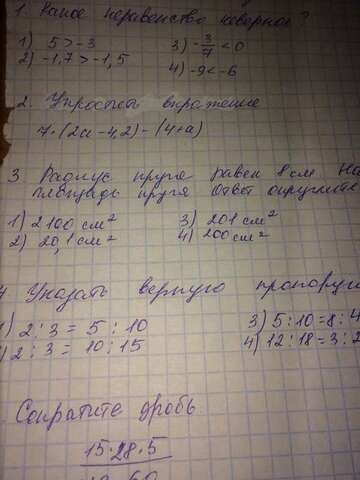 1. Какое неравенство неверное?
1) 5 > -3
3) -3/7 < 0
2) -1,7 > -1,5
4) -9 < -6
2. Упростить выражение
7·(2а-4,2)-(4+а)
3 Радиус круга равен 8 см На
площадь круга Ответ округлите
1) 2100 см²
3) 201 см²
2) 20,1 см²
4) 200 см²
Указать верную пропорци
1) 2:3 = 5:10
3) 5:10=8:4
2:3 = 10:15
4) 12:18=3:2
Сократите дробь
15·28·5